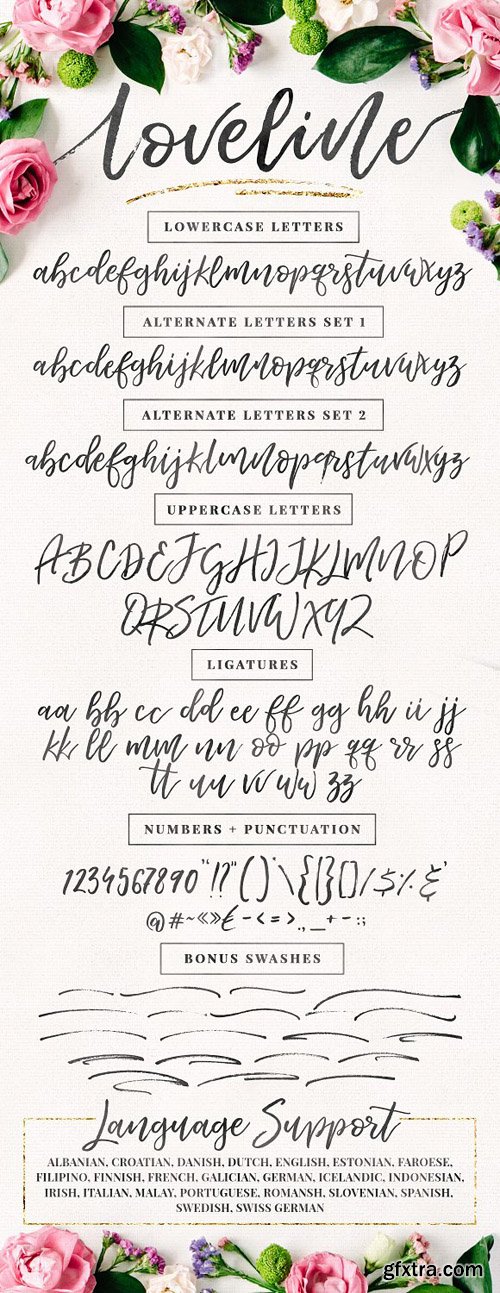 loveline
LOWERCASE LETTERS
abcdefghijklmnopqrstuvwxyz
ALTERNATE LETTERS SET 1
abcdefghijklmnopqrstuvwxyz
ALTERNATE LETTERS SET 2
abcdefghijklmnopqrstuvwxyz
UPPERCASE LETTERS
ABCDEFGHIJKLMNOP
QRSTUVWXYZ
LIGATURES
aa bb cc dd ee ff gg hh ii jj
kk ll mm nn oo pp qq rr ss
tt uu vv ww zz
NUMBERS + PUNCTUATION
1234567890 “!?” ( ) * \ { | } [ ] / $ % & '
@ # ~ « » € - < = > . , _ + - : ;
BONUS SWASHES
Language Support
ALBANIAN, CROATIAN, DANISH, DUTCH, ENGLISH, ESTONIAN, FAROESE,
FILIPINO, FINNISH, FRENCH, GALICIAN, GERMAN, ICELANDIC, INDONESIAN,
IRISH, ITALIAN, MALAY, PORTUGUESE, ROMANSH, SLOVENIAN, SPANISH,
SWEDISH, SWISS GERMAN
gfxtra.com